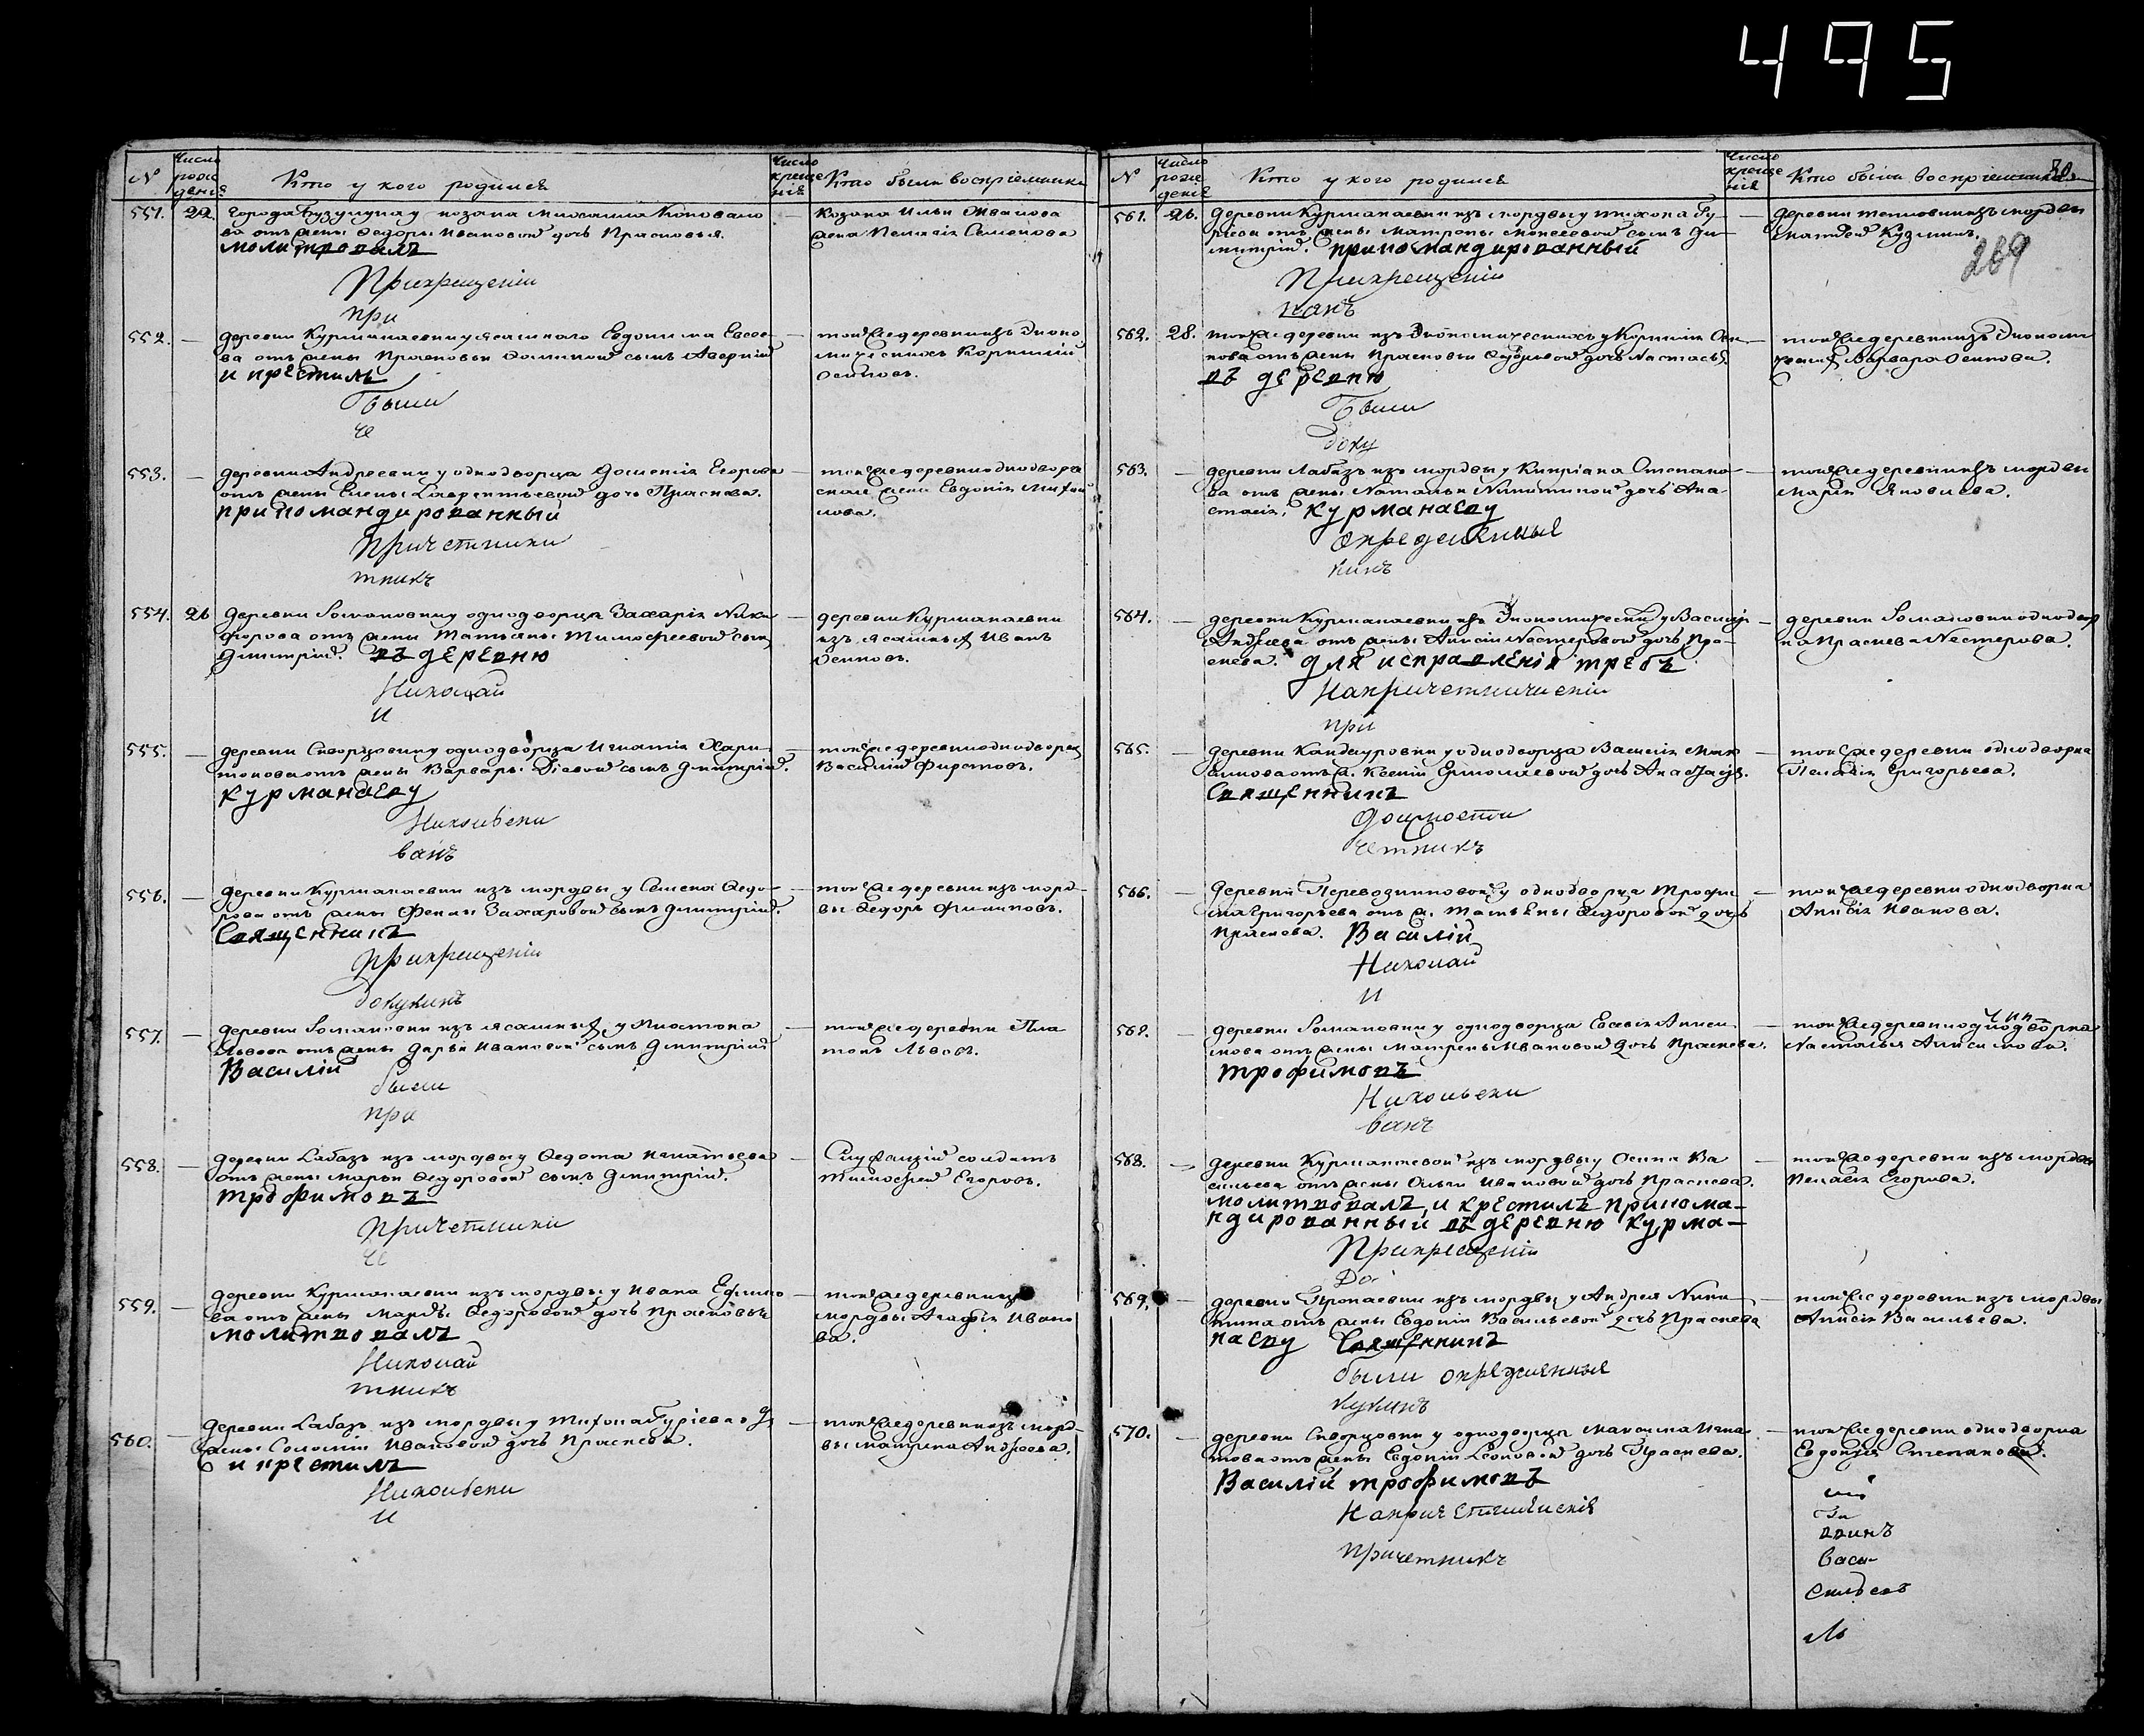 495
№
Число рожденія
Кто у кого родился
Число крещенія
Кто были воспріемники
551. 22. Города Бузулука у козака
ва отъ жены Ѳедоры Ивановой дочь Прасковья.
молитвовалъ
Прикрещеніи
при
Козака Ильи Иванова
жена Пелагія Семенова
552. — деревни Курманаевки у ясашнаго Евдокима Евсее-
ва отъ жены Прасковьи сынъ Аверкій
и крестилъ
были
че
тойже деревни изъ Эконо
мическихъ Корнилій
Осиповъ.
553. — деревни Андреевки у однодворца Дометія Егорова
отъ жены Елены Лаврентьевой дочь Праскева.
прикомандированный
Причетники
тникъ
тойже деревни однодворч
ская жена Евдокія Михай
лова.
554. 26 деревни Романовки у однодворца Захарія Ники
форова отъ жены Татьяны Тимофеевой сынъ
Димитрій. въ деревню
Николай
и
деревни Курманаевки
изъ ясашныхъ Иванъ
Осиповъ.
555. — деревни Скворцовки у однодворца Игнатія Хари-
тонова отъ жены Варвары сынъ Димитрій.
курманаеву
Никольски
ванъ
тойже деревни однодворец
Василій Фирстовъ.
556. — деревни Курманаевки изъ мордвы у Семена Ѳедо-
рова отъ жены Феклы Захаровой сынъ Димитрій.
Священникъ
Прикрещеніи
докукинъ
тойже деревни изъ морд-
вы Ѳедоръ Филиповъ.
557. — деревни Романовки изъ ясашныхъ у Платона
Львова отъ жены Дарьи Ивановой сынъ Димитрій
Василій
были
при
тойже деревни Пла
тонъ Львовъ.
558. — деревни Лабазъ изъ мордвы у Ѳедота Игнатьева
отъ жены Марьи Ѳедоровой сынъ Димитрій.
трофимовъ
Причетники
че
Служащій солдатъ
Тимофей Егоровъ.
559. — деревни Курманаевки изъ мордвы у Ивана Ефимо
ва отъ жены Марфы Ѳедоровой дочь Прасковья
молитвовалъ
Николай
тникъ
тойже деревни изъ
мордвы Агафія Ивано
ва.
560. — деревни Лабазъ изъ мордвы у Тихона Гуріева отъ
жены Соломіи Ивановой дочь Праскева.
и крестилъ
Никольски
и
тойже деревни изъ морд-
вы Матрена Андреева.
№
Число рожденія
Кто у кого родился
Число крещенія
Кто были воспріемники
269
561. 26. деревни Курманаевки изъ мордвы у Тихона Гу-
ріева отъ жены Матроны Моисеевой сынъ Ди-
митрій. прикомандированный
Прикрещеніи
ванъ
деревни изъ мордвы
Матвей Кузминъ.
562. 28. тойже деревни изъ Экономическихъ у Корнилія Оси-
пова отъ жены Прасковьи дочь Настасья.
въ деревню
были
доку
тойже деревни изъ Экономи
Варвара Осипова.
563. — деревни Лабазъ изъ мордвы у Кипріана Степано-
ва отъ жены Натальи Никитиной дочь Ана-
стасія. курманаеву
опредѣленныя
кинъ
тойже деревни изъ мордвы
Марія Яковлева.
564. — деревни Курманаевки изъ Экономически у Василія
Андреева отъ жены Анисіи Нестеровой дочь Пра-
скева. для исправленія требъ
Напричетническіи
при
деревни Романовки однодвор
ка Праскева Нестерова.
565. — деревни Кандауровки у однодворца Василія Мак
симова отъ ж. Ксеніи Ермолаевой дочь Анастасія.
Священникъ
должности
четникъ
тойже деревни однодворка
Пелагія Григорьева.
566. — деревни Перевозниковой у однодворца Трофи
ма Григорьева отъ ж. Татьяны Ѳедоровой дочь
Праскева. Василій
Николай
и
тойже деревни однодворка
Анисія Иванова.
568. — деревни Романовки у однодворца Евсевія Аниси
мова отъ жены Матрены Ивановой дочь Праскева.
трофимовъ
Никольски
ванъ
чин
тойже деревни однодворка
Наталья Анисимова.
568. — деревни Курманаевой изъ мордвы у Осипа Ва
сильева отъ жены Ольги Ивановой дочь Праскева.
молитвовалъ и крестилъ прикома-
ндированный въ деревню курма-
Прикрещеніи
До
тойже деревни изъ мордвы
Пелагія Егорова.
569. — деревни изъ мордвы у Андрея Ники
тина отъ жены Евдокіи Васильевой дочь Праскева
наеву Священникъ
были опредѣленныя
кукинъ
тойже деревни изъ мордвы
Анисія Васильева.
570. — деревни Скворцовки у однодворца Максима Игна
това отъ жены Евдокіи Леоновой дочь Праскева.
Василій трофимовъ
Напричетническія
причетникъ
тойже деревни однодворка
Евдокія Степанова.
ввинъ
Васи-